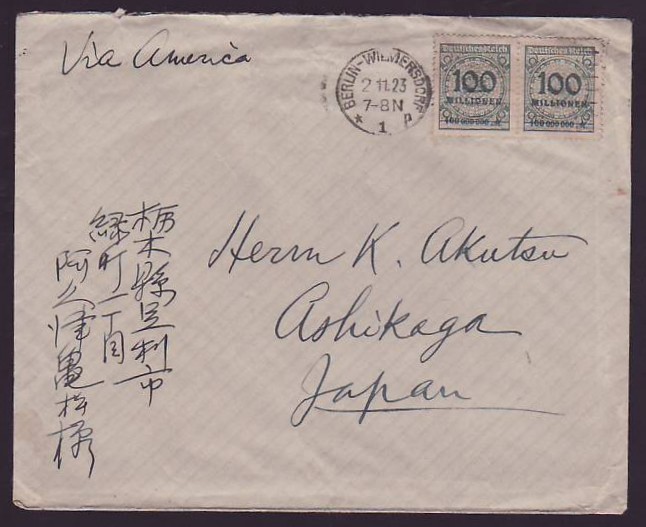 Via America
BERLIN-WILMERSDORF
2.11.23
7-8N
* 1 d
Deutsches Reich
100
MILLIONEN
100 000 000 M
Deutsches Reich
100
MILLIONEN
100 000 000 M
Herrn K. Akutsu
Ashikaga
Japan
栃木縣足利市
緑町二丁目
阿久津亀松様